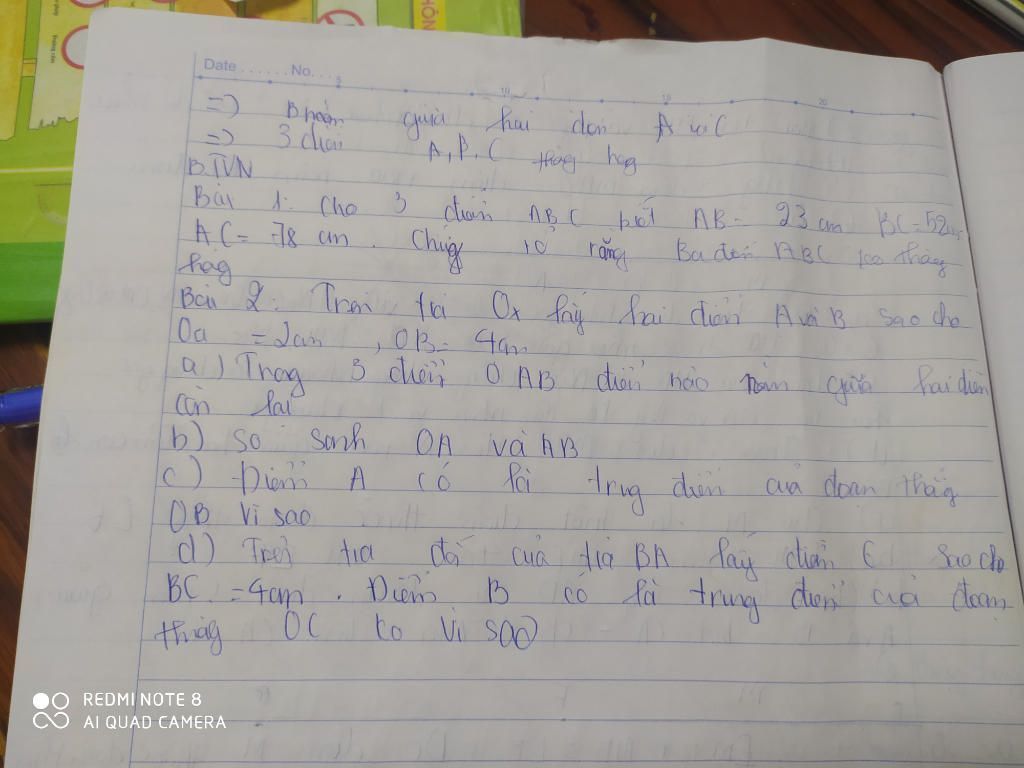 Date ...... No. ...
=) B nằm giữa hai điểm A và C
=) 3 điểm A, B, C thẳng hàng
BTVN
Bài 1: Cho 3 điểm ABC biết AB = 23 cm BC = 52cm
AC = 78 cm. Chứng tỏ rằng Ba điểm ABC ko thẳng
hàg
Bài 2: Trên tia Ox lấy hai điểm A và B sao cho
Oa = 2cm, OB = 4cm
a) Trong 3 điểm O AB điểm nào nằm giữa hai điểm
còn lại
b) so sanh OA và AB
c) Điểm A có là trug điểm của đoạn thẳg
OB Vì sao
d) Trên tia đối của tia BA lấy điểm C sao cho
BC = 4cm. Điểm B có là trung điểm của đoạn
thẳg OC ko Vì sao
REDMI NOTE 8
AI QUAD CAMERA